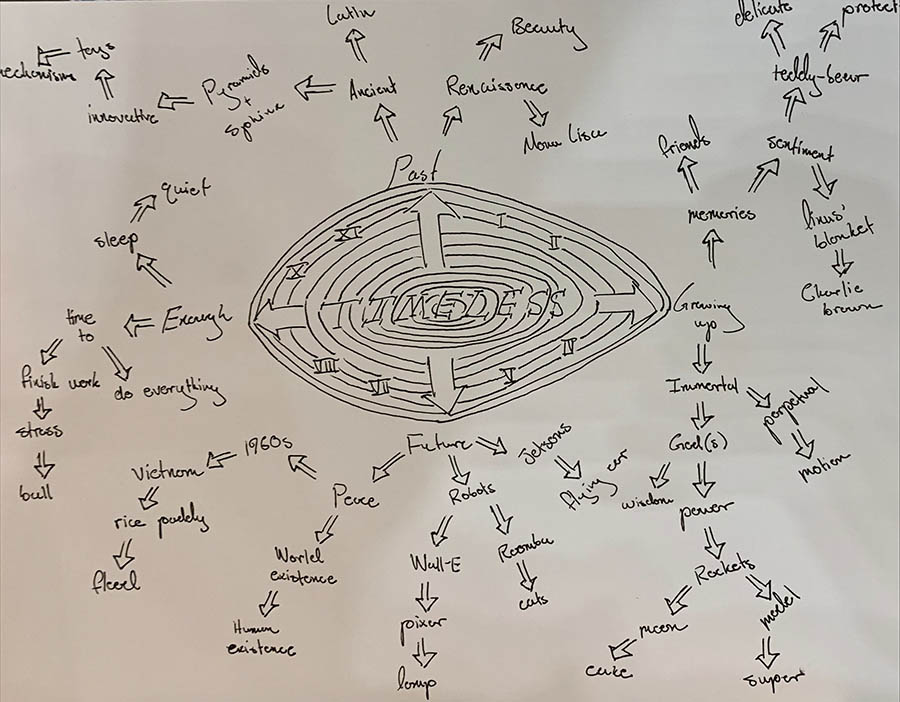 Latin
Beauty
delicate
protect
mechanisms
toys
teddy-bear
innovative
Pyramids
+
sphinx
Ancient
Renaissence
Mona Lisa
friends
sentiment
Past
quiet
memories
linus'
blanket
sleep
XI
I
II
X
Charlie
brown
time
to
Enough
TIMELESS
Growing
up
finish work
do everything
VIII
VII
V
IV
Immortal
perpetual
stress
bull
1960s
Future
Jetsons
God(s)
motion
Vietnam
Peace
Robots
flying car
wisdom
power
rice paddy
World
existence
Wall-E
Roomba
Rockets
flood
cats
Human
existence
pixar
moon
model
lamp
cake
super